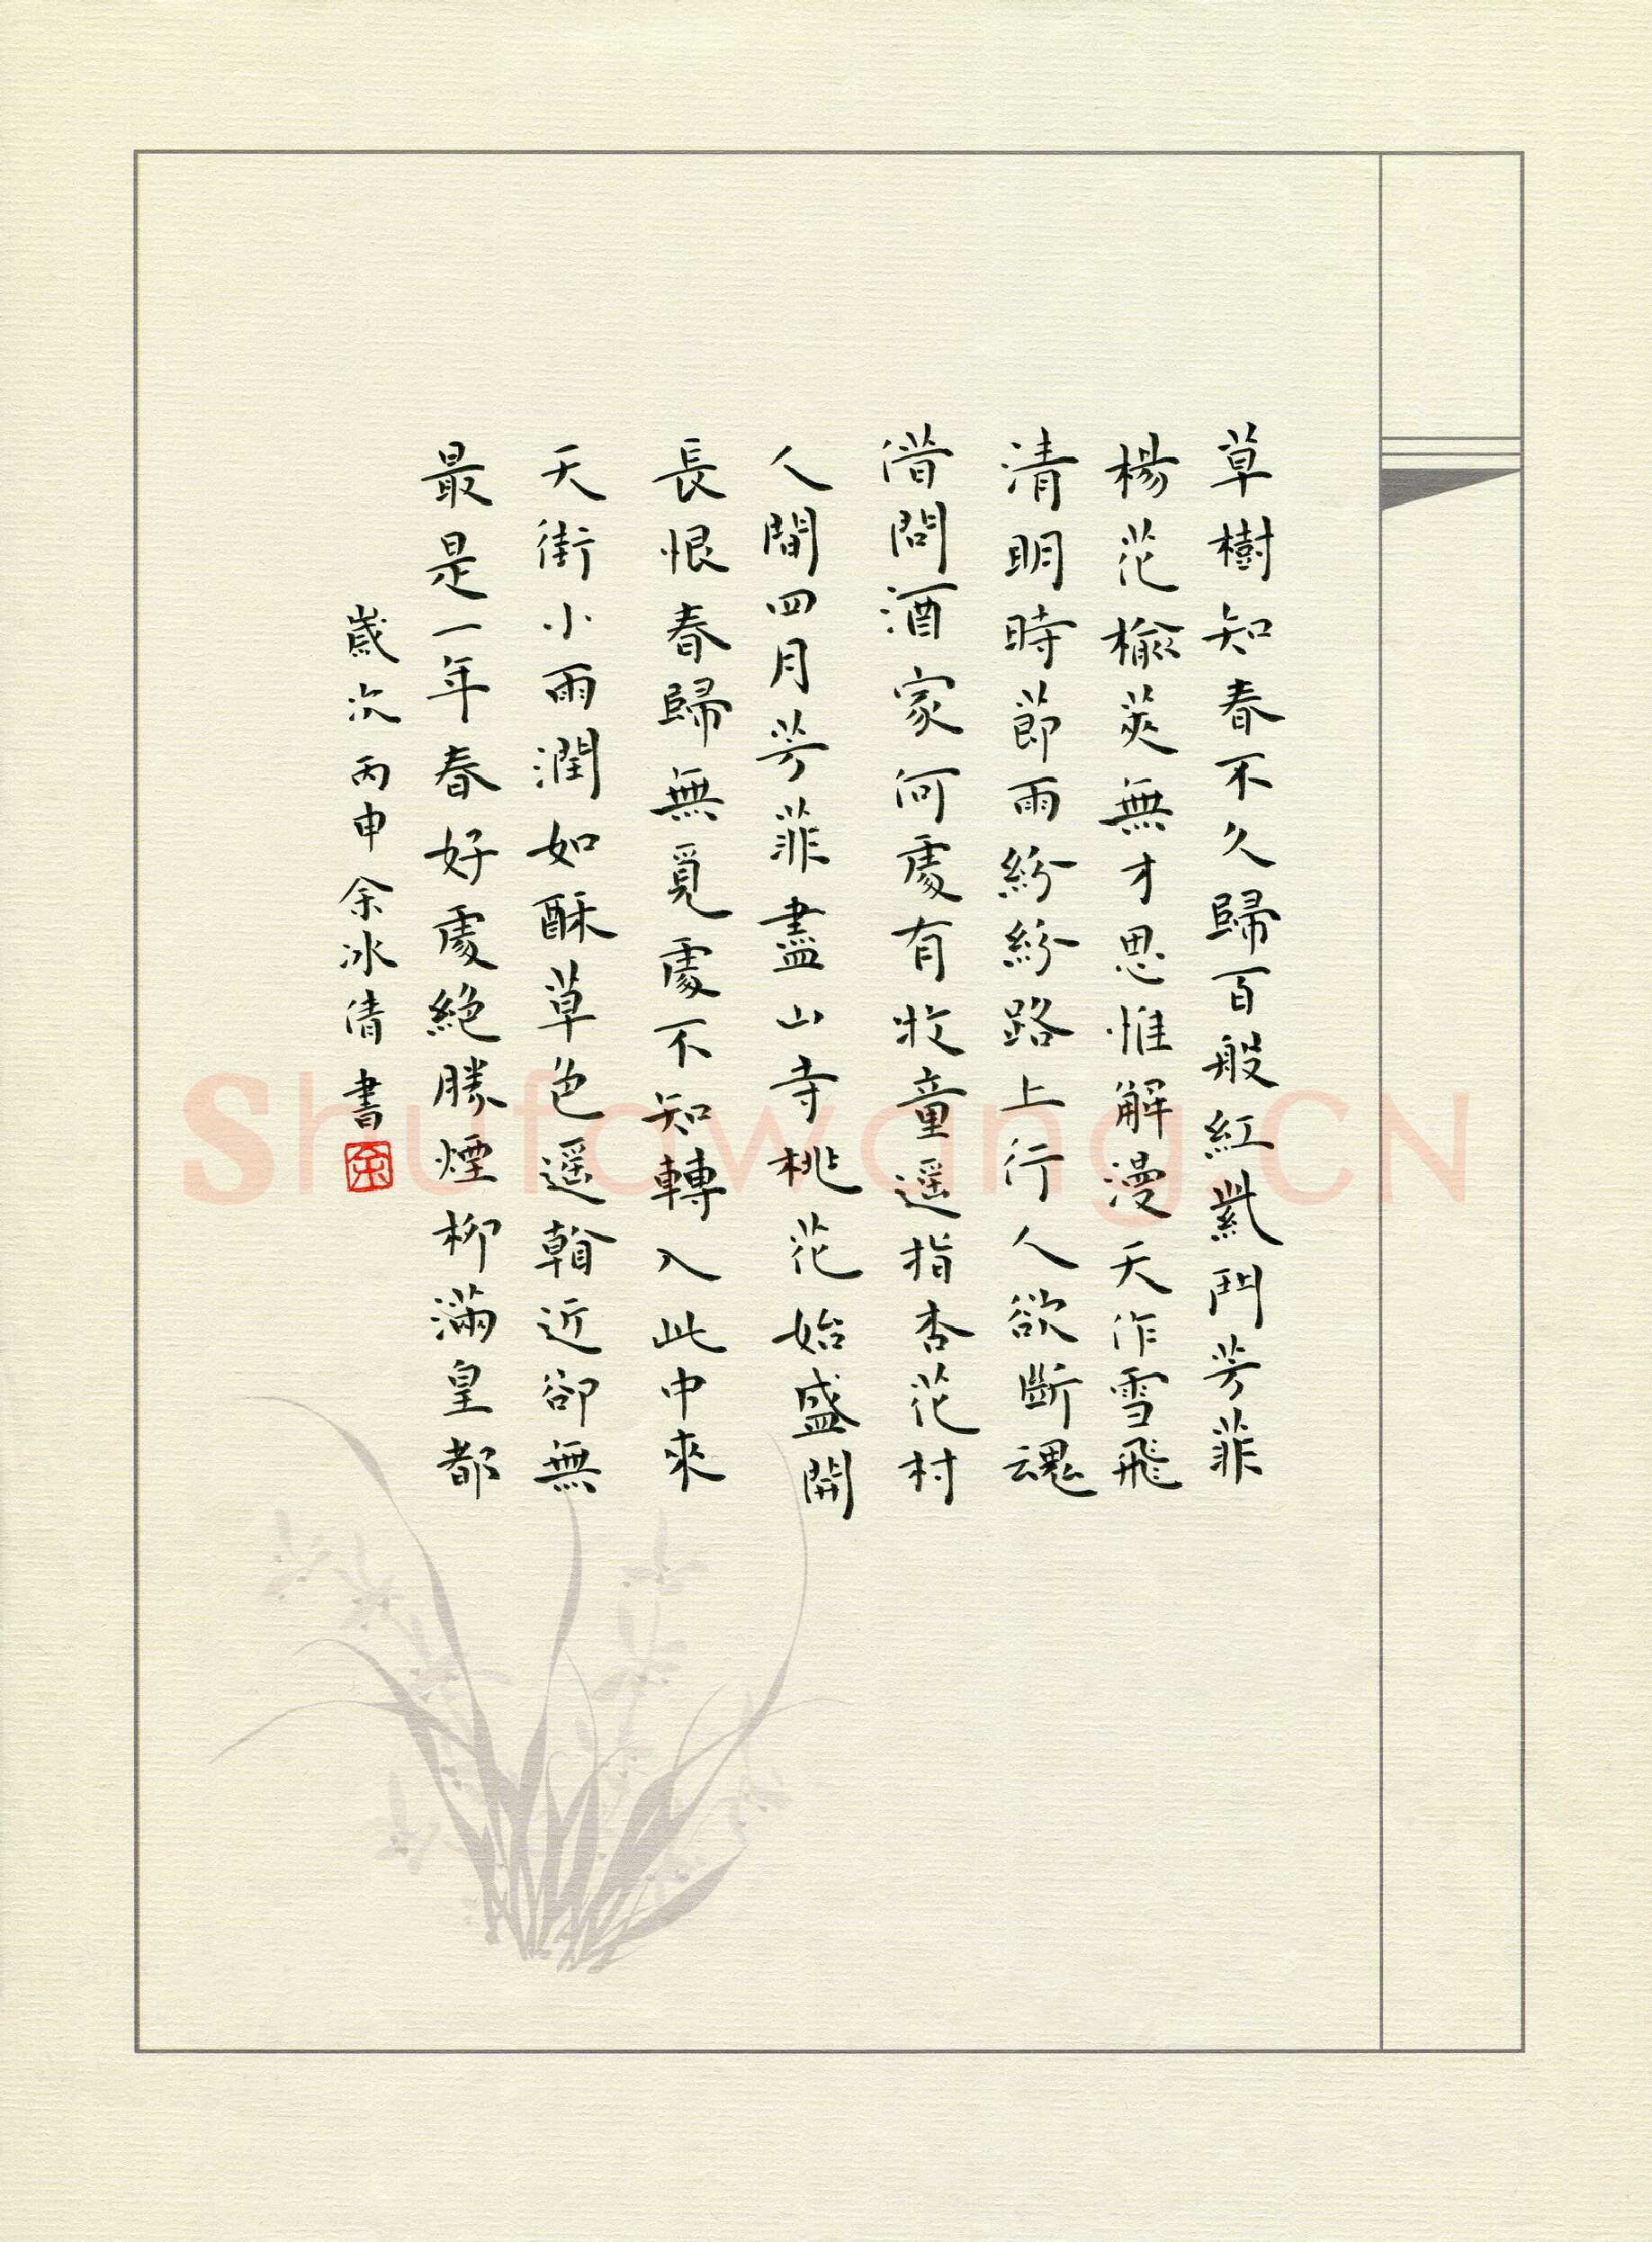 草樹知春不久歸百般紅紫鬥芳菲
楊花榆莢無才思惟解漫天作雪飛
清明時節雨紛紛路上行人欲斷魂
借問酒家何處有牧童遥指杏花村
人間四月芳菲盡山寺桃花始盛開
長恨春歸無覓處不知轉入此中來
天街小雨潤如酥草色遥看近卻無
最是一年春好處絕勝煙柳滿皇都
歲次丙申余冰倩書
余
Shufawang.CN